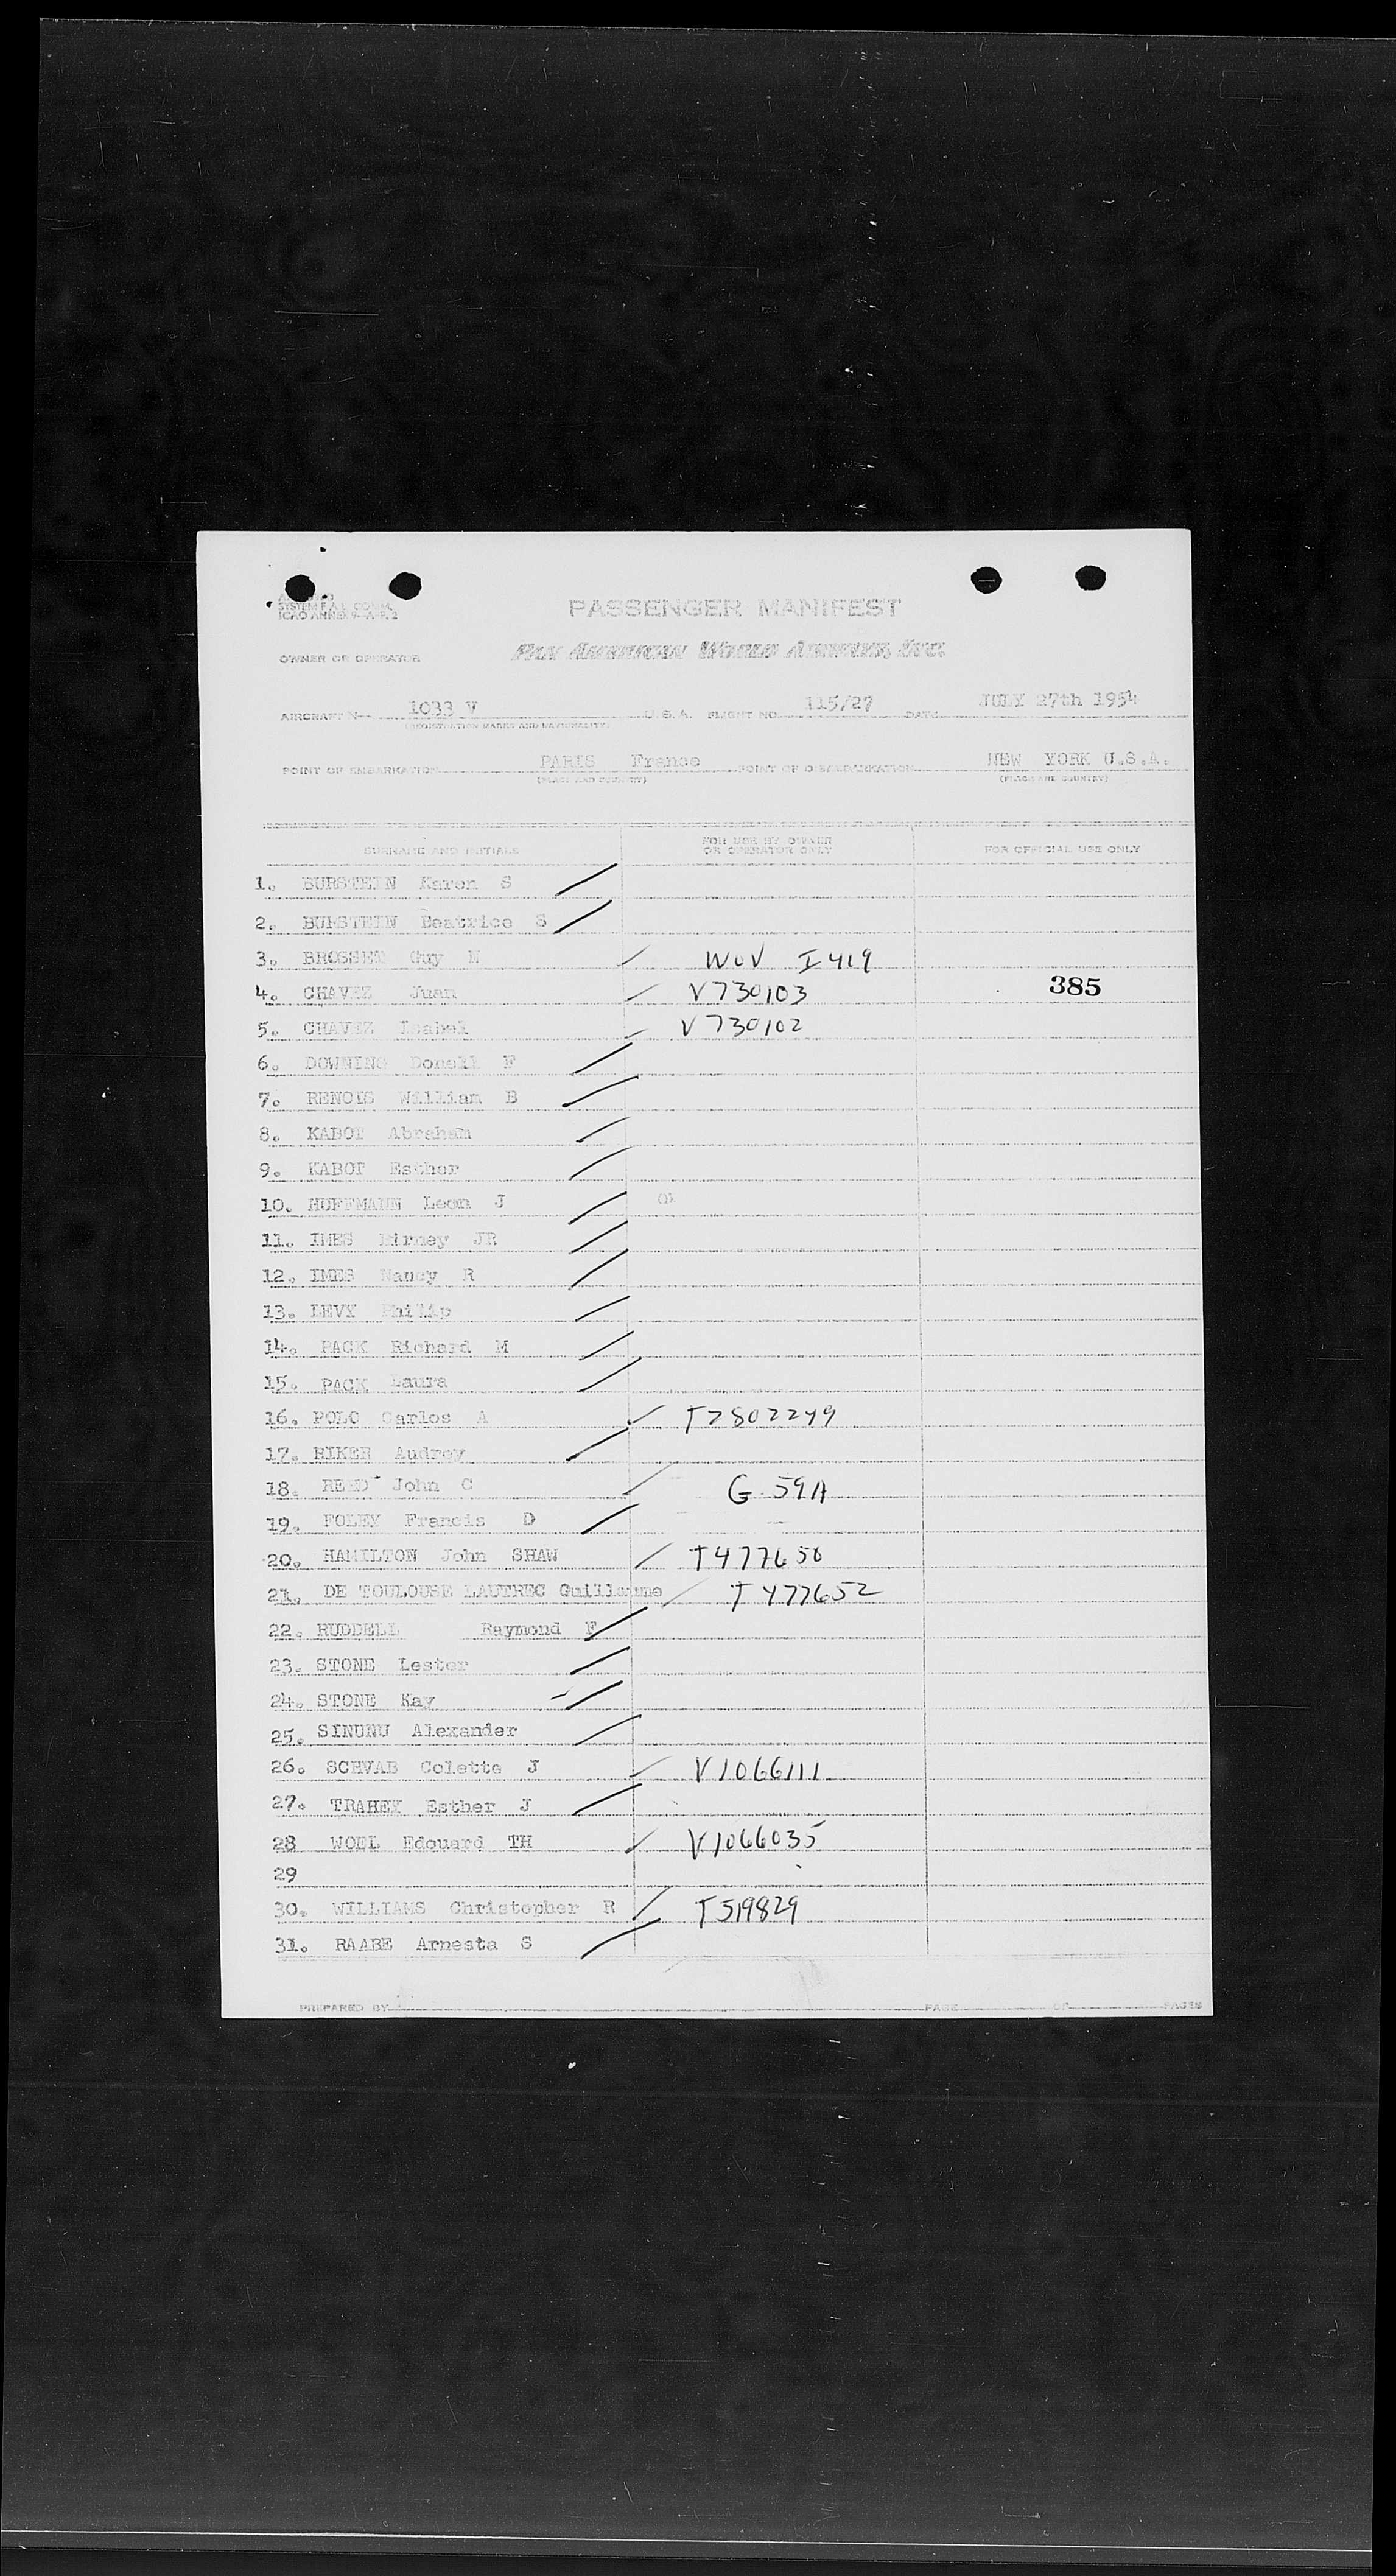 SYSTEM F.A.L. COMM.
ICAO ANNEX 9-APP. 2
PASSENGER MANIFEST
OWNER OR OPERATOR PAN AMERICAN WORLD AIRWAYS, INC.
AIRCRAFT N-- 1033 V U.S.A. FLIGHT NO. 115/27 DATE JULY 27th 1954
(REGISTRATION MARKS AND NATIONALITY)
POINT OF EMBARKATION PARIS France POINT OF DISEMBARKATION NEW YORK U.S.A.
(PLACE AND COUNTRY) (PLACE AND COUNTRY)
SURNAME AND INITIALS FOR USE BY OWNER OR OPERATOR ONLY FOR OFFICIAL USE ONLY
1. BURSTEIN Karen S
2. BURSTEIN Beatrice S
3. BROSSET Guy I419
4. CHAVEZ Juan V730103 385
5. CHAVEZ Isabel V730102
6. DOWNING Donald F
7. William B
8. KABOT Abraham
9. KABOT Esther
10. HUFFMANN Leon J Ok
11. IMES Birney JR
12. IMES Nancy R
13. LEVY Philip
14. PACK Richard M
15. PACK Laura
16. POLO Carlos A T2802249
17. RIKER Audrey
18. REED John C G-59A
19. FOLEY Francis D
20. HAMILTON John SHAW T477650
21. DE TOULOUSE LAUTREC Guillaume T477652
22. RUDDELL Raymond F
23. STONE Lester
24. STONE Kay
25. SINUNU Alexander
26. SCHVAB Colette J V1066111
27. TRAHEY Esther J
28 WOEL Edouard TH V1066035
29
30. WILLIAMS Christopher R T519829
31. RAABE Arnesta S
PREPARED BY PAGE OF PAGES